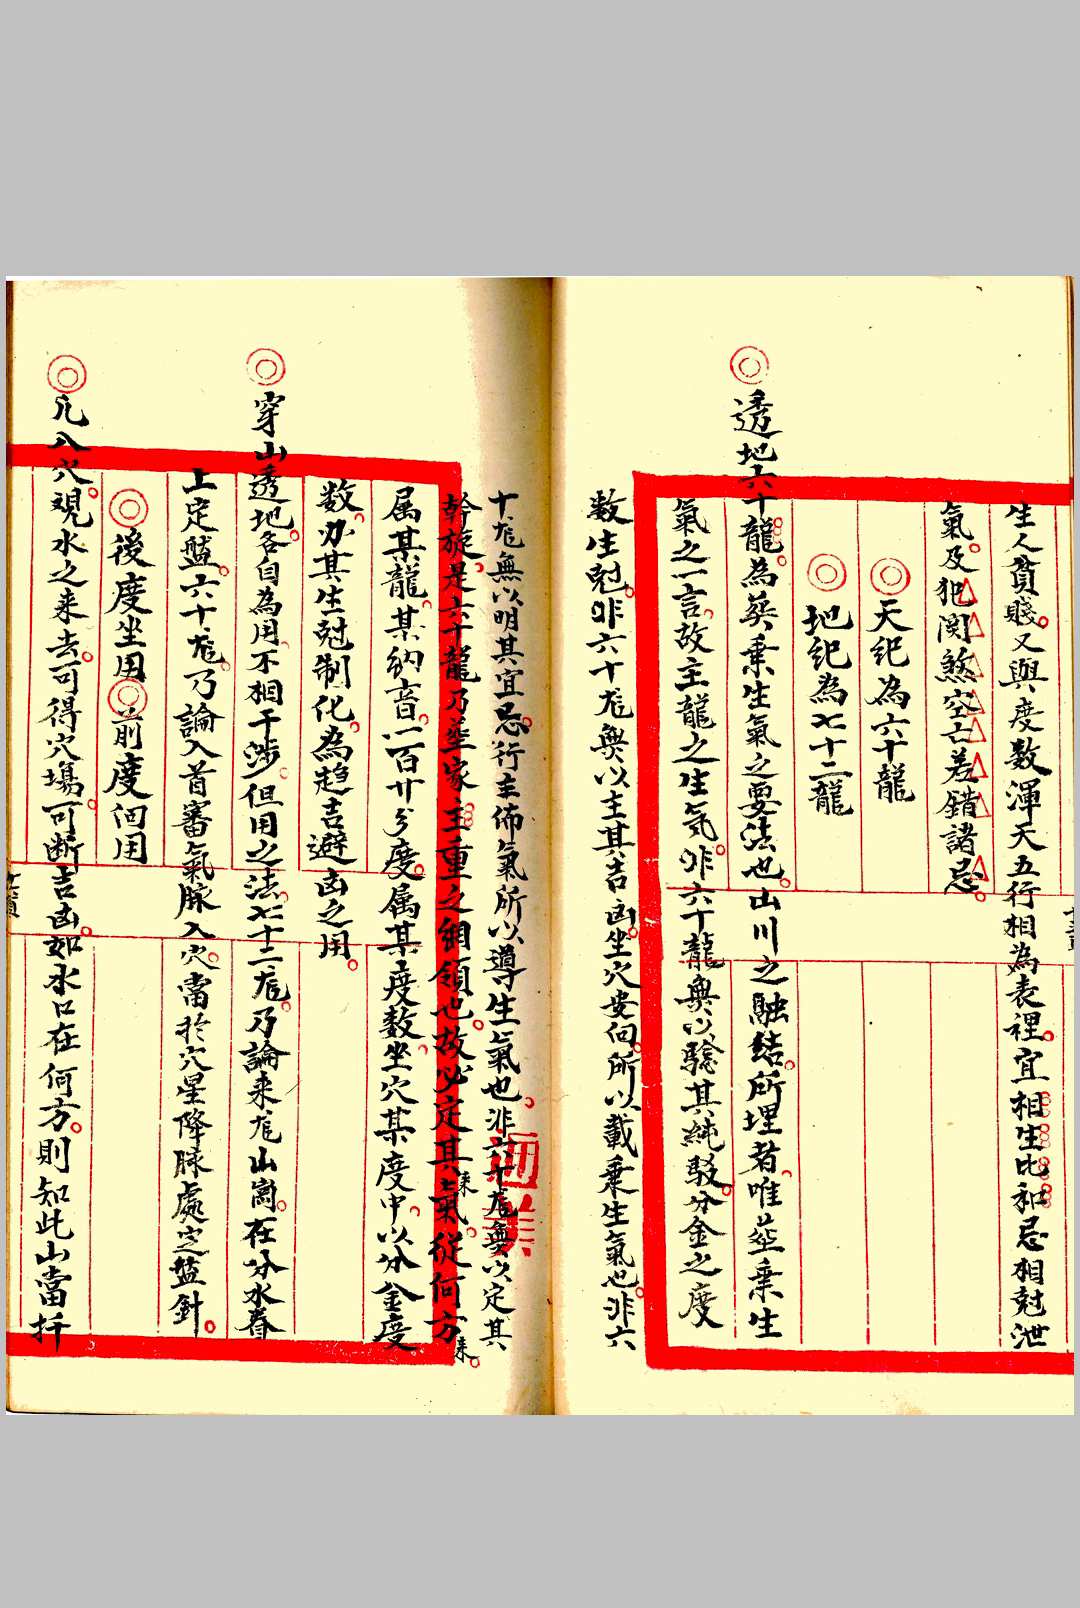 生人貧賤又與度数渾天五行相為表裡宜相生比和忌相尅泄
氣及犯関煞空亡差錯諸忌
天紀為六十龍
地紀為七十二龍
透地六十龍為葬乗生氣之要法也山川之融結所埋者唯葬乗生
氣之一言故主龍之生気非六十龍無以驗其純駁分金之度
数生尅非六十龙無以主其吉凶坐穴安向所以載乗生氣也非六
十龙無以明其宜忌行主佈氣所以導生氣也非六十龙無以定其
斡旋是六十龍乃葬家主重之綱領也故必定其氣從何方來
属某龍某納音一百廿分度属某度数坐穴某度中以分金度
数办其生尅制化為趋吉避凶之用
穿山透地各自為用不相干涉但用之法七十二龙乃論来龙山崗在分水脊
上定盤六十龙乃論入首審氣脉入穴當於穴星降脉處定盤針
後度坐用前度向用
凡八穴視水之来去可得穴塲可断吉凶如水口在何方則知此山當扦